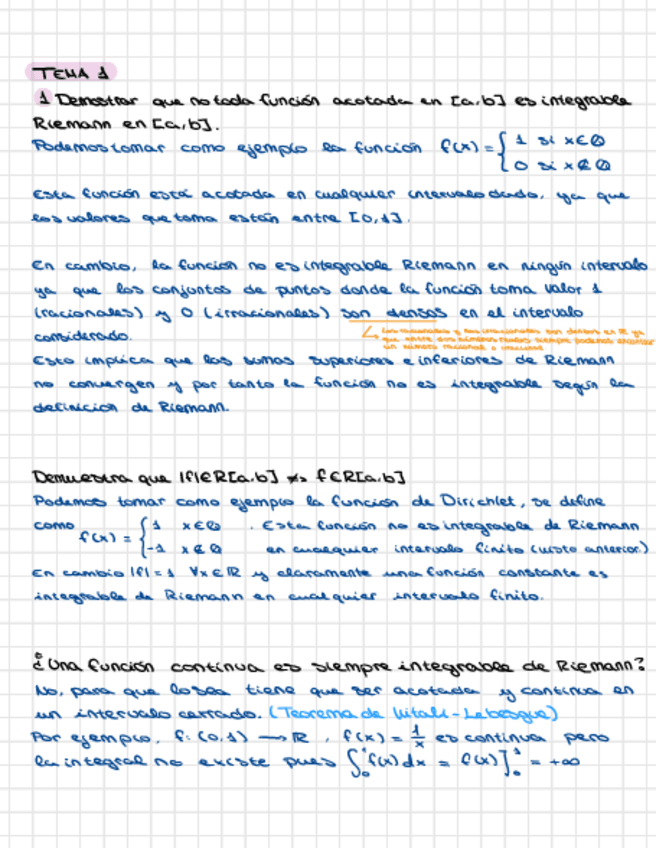 TEMA 1
1 Demostrar que no toda función acotada en [a,b] es integrable
Riemann en [a,b].
Podemos tomar como ejemplo la función f(x) = { 1 si x ∈ ℚ
0 si x ∉ ℚ
Esta función está acotada en cualquier intervalo dado, ya que
los valores que toma están entre [0,1].
En cambio, la función no es integrable Riemann en ningún intervalo
ya que los conjuntos de puntos donde la función toma valor 1
(racionales) y 0 (irracionales) son densos en el intervalo
considerado.
↳ Los racionales y los irracionales son densos en ℝ ya
que entre dos números reales siempre podemos encontrar
un número racional o irracional
Esto implica que las sumas superiores e inferiores de Riemann
no convergen y por tanto la función no es integrable según la
definición de Riemann.
Demuestra que |f| ∈ R[a,b] ⇏ f ∈ R[a,b]
Podemos tomar como ejemplo la función de Dirichlet, se define
como f(x) = { 1 x ∈ ℚ . Esta función no es integrable de Riemann
-1 x ∉ ℚ en cualquier intervalo finito (visto anterior.)
En cambio |f| = 1 ∀x ∈ ℝ y claramente una función constante es
integrable de Riemann en cualquier intervalo finito.
¿Una función continua es siempre integrable de Riemann?
No, para que lo sea tiene que ser acotada y continua en
un intervalo cerrado. (Teorema de Vitali-Lebesgue)
Por ejemplo, f: (0,1) → ℝ, f(x) = 1/x es continua pero
la integral no existe pues ∫₀¹ f(x) dx = f(x)]₀¹ = +∞